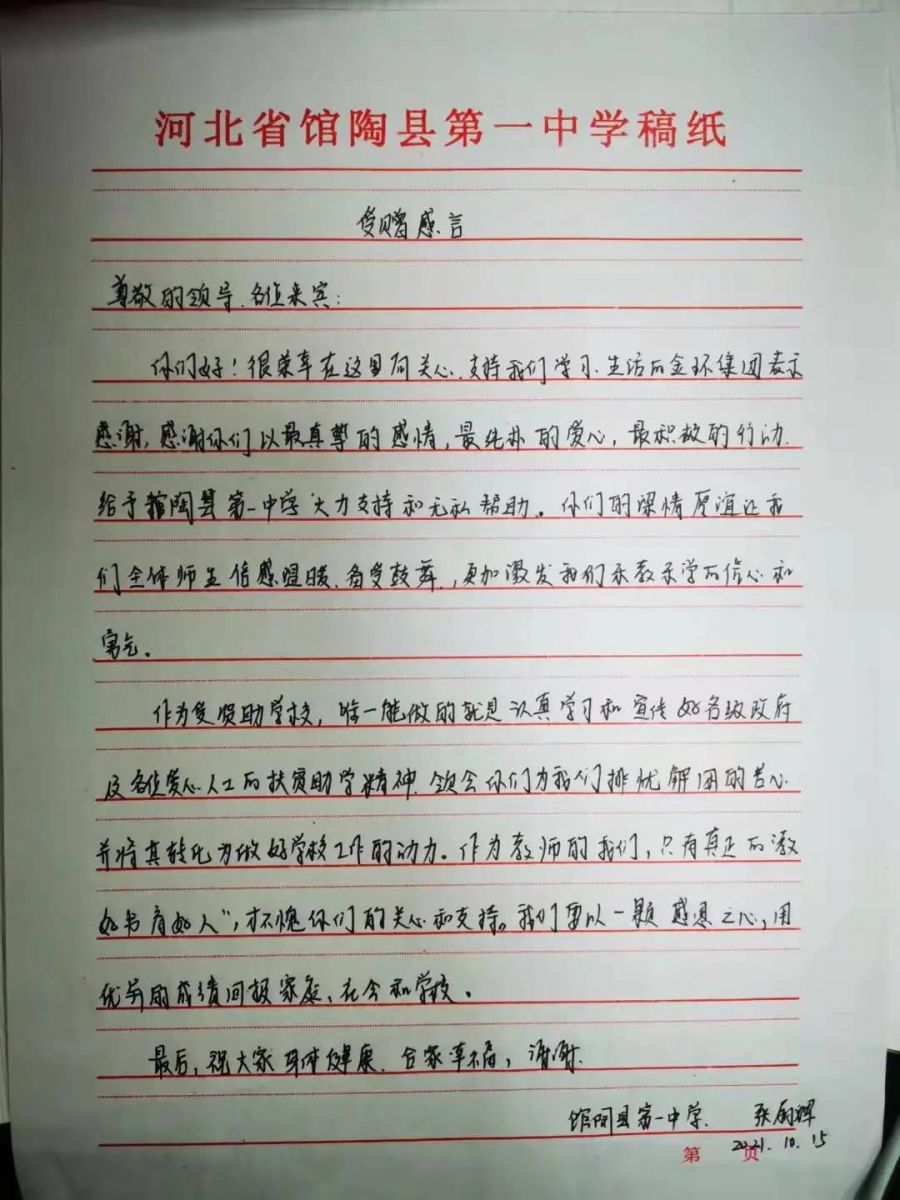 河北省馆陶县第一中学稿纸
受赠感言
尊敬的领导、各位来宾：
你们好！很荣幸在这里向关心、支持我们学习、生活的金环集团表示
感谢，感谢你们以最真挚的感情，最纯朴的爱心，最积极的行动，
给予馆陶县第一中学大力支持和无私帮助。你们的深情厚谊让我
们全体师生倍感温暖、备受鼓舞，更加激发我们乐教乐学的信心和
勇气。
作为受资助学校，唯一能做的就是认真学习和宣传好各级政府
及各位爱心人士的扶贫助学精神，领会你们为我们排忧解困的苦心
并将其转化为做好学校工作的动力。作为教师的我们，只有真正的“教
好书育好人”，才不愧你们的关心和支持。我们要以一颗感恩之心，用
优异的成绩回报家庭、社会和学校。
最后，祝大家身体健康、合家幸福，谢谢。
馆陶县第一中学 张
2021.10.15
第 页